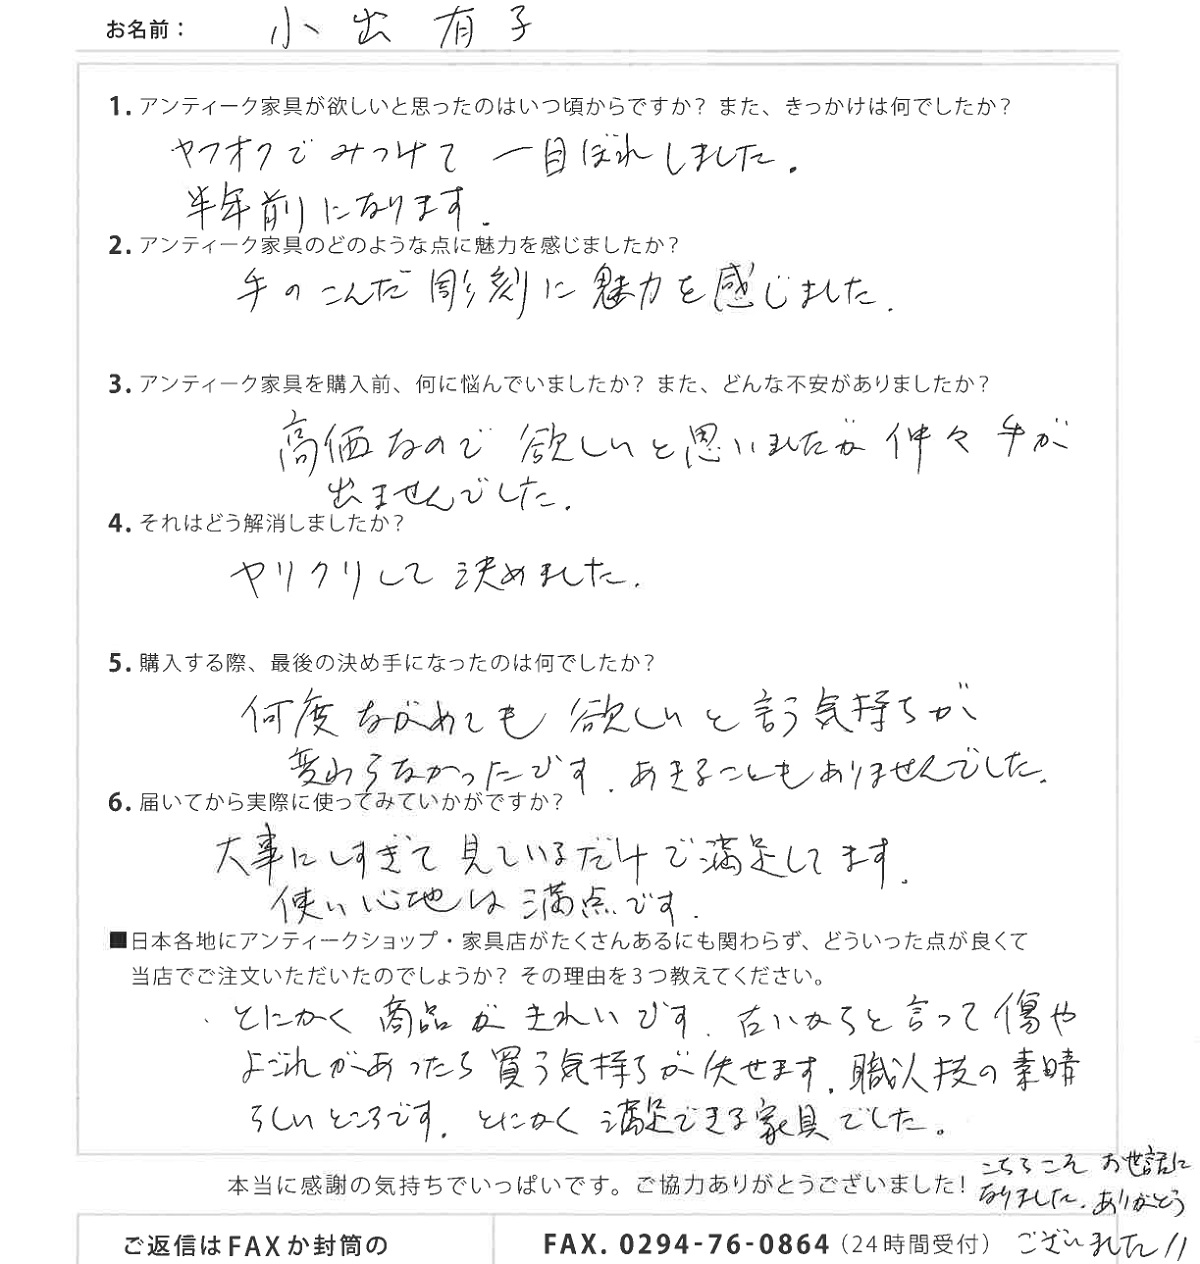 お名前： 小出 有子
1. アンティーク家具が欲しいと思ったのはいつ頃からですか？ また、きっかけは何でしたか？
ヤフオクでみつけて 一目ぼれしました。
半年前になります.
2. アンティーク家具のどのような点に魅力を感じましたか？
手のこんだ 彫刻に 魅力を 感じました.
3. アンティーク家具を購入前、何に悩んでいましたか？ また、どんな不安がありましたか？
高価なので 欲しいと思いましたが 仲々 手が
出ませんでした.
4. それはどう解消しましたか？
ヤリクリして 決めました.
5. 購入する際、最後の決め手になったのは何でしたか？
何度 ながめても 欲しいと言う気持ちが
変わらなかったです. あきることもありませんでした.
6. 届いてから実際に使ってみていかがですか？
大事にしすぎて 見ているだけで満足してます.
使い心地は 満点です.
■日本各地にアンティークショップ・家具店がたくさんあるにも関わらず、どういった点が良くて
当店でご注文いただいたのでしょうか？ その理由を3つ教えてください。
・とにかく 商品が きれいです. 古いからと言って 傷や
よごれがあったら 買う気持ちが失せます. 職人技の 素晴
らしいところです. とにかく 満足できる家具でした。
本当に感謝の気持ちでいっぱいです。ご協力ありがとうございました！
こちらこそ お世話に
なりました. ありがとう
ございました!!
ご返信はFAXか封筒の
FAX. 0294-76-0864（24時間受付）